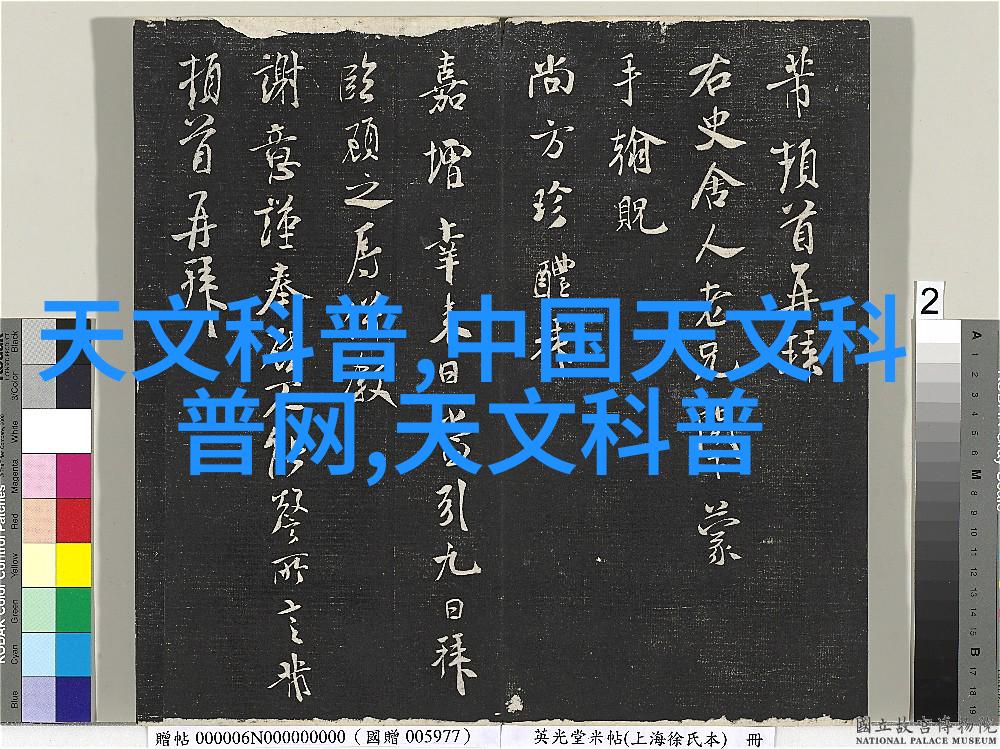 天文科普,中国天文科
普网,天文科普
芾頓首再拜
右史舍人老兄蒙
手翰貺
尚方珍醴
嘉幸日引九日拜
臨顧之教
謝意謹奉所言芾
頓首再拜
2
Black
3/Color
White
Magenta
Red
Yellow
Green
Cyan
Blue
A
1
2
3
4
5
6
M
8
9
10
11
12
13
14
15
B
17
18
19
贈帖 000006N000000000 (國贈 005977)
英光堂米帖(上海徐氏本) 冊
國立故宮博物院
NATIONAL PALACE MUSEUM